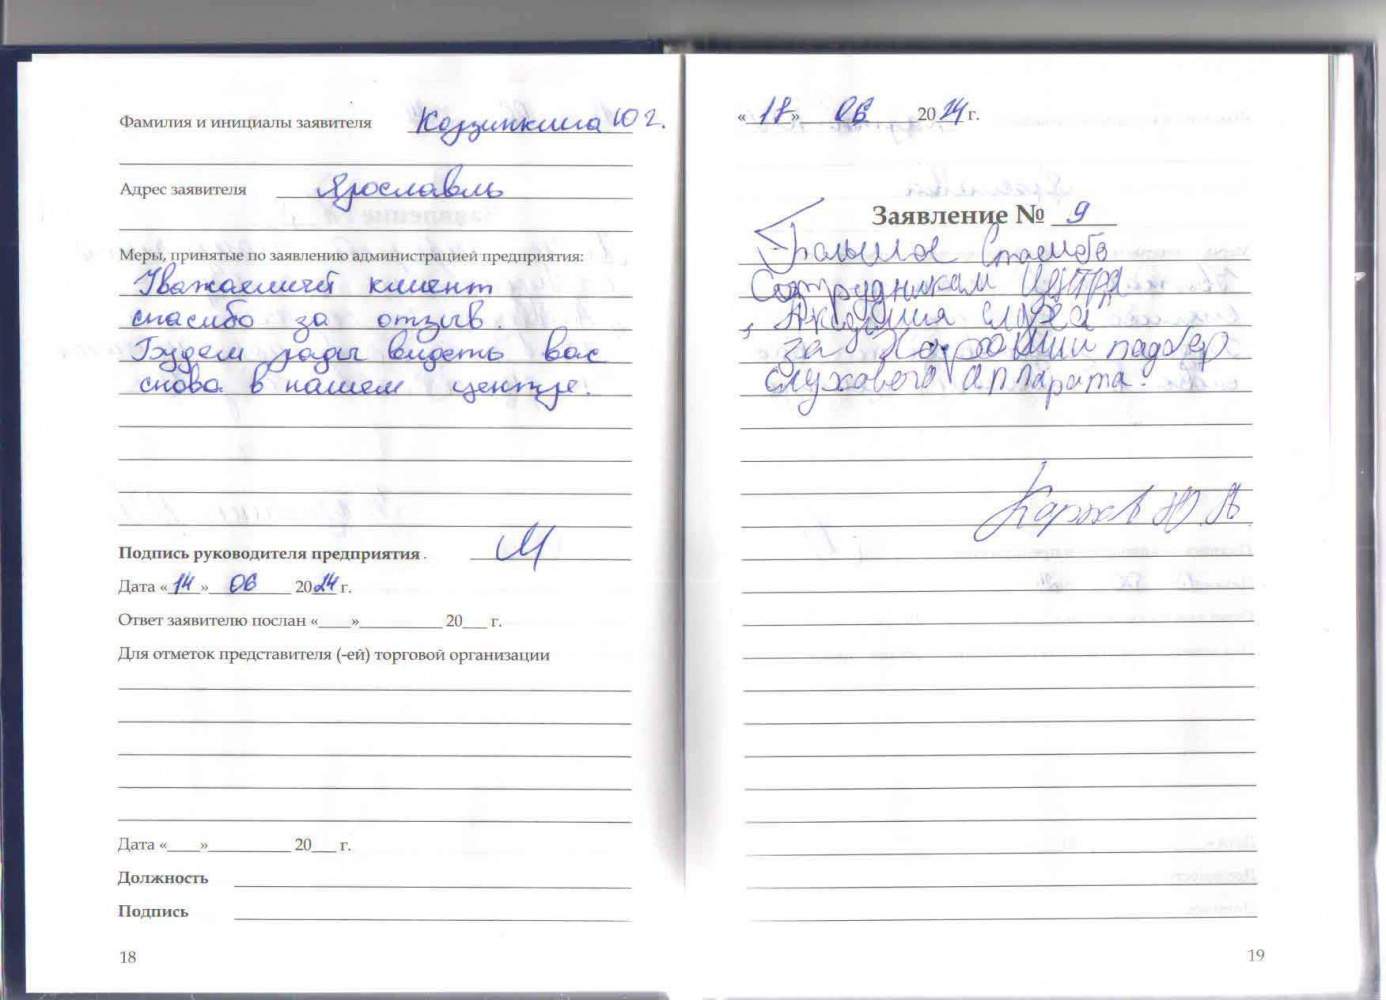 Фамилия и инициалы заявителя Ю Г.
Адрес заявителя Ярославль
Меры, принятые по заявлению администрацией предприятия:
Уважаемый клиент
спасибо за отзыв.
Будем рады видеть вас
снова в нашем центре.
Подпись руководителя предприятия
Дата «14» 06 2024 г.
Ответ заявителю послан «___»__________ 20___ г.
Для отметок представителя (-ей) торговой организации
Дата «____»__________ 20___ г.
Должность
Подпись
18
« » 06 2024 г.
Заявление № 9
Большое Спасибо
Сотрудникам Центра
Академия слуха
за Хороший падбер
слухового аппарата.
19